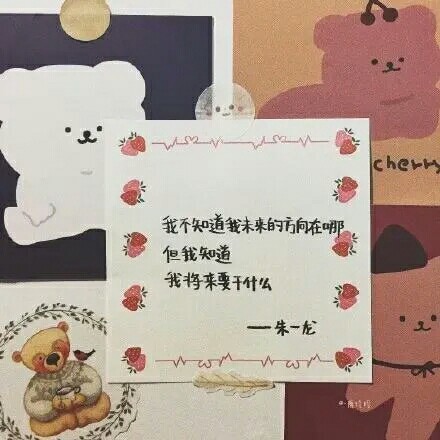 cherry
我不知道我未来的方向在哪
但我知道
我将来要干什么
——朱一龙